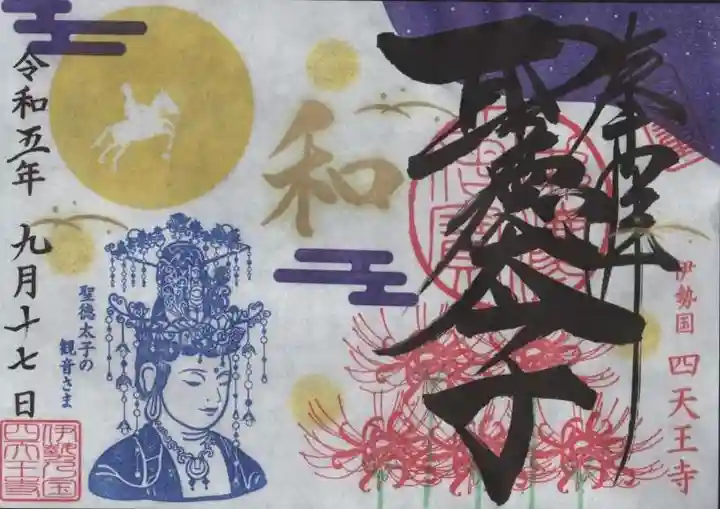 奉拝
聖徳太子
伊勢国 四天王寺
和
聖徳太子の
観音さま
令和五年 九月十七日